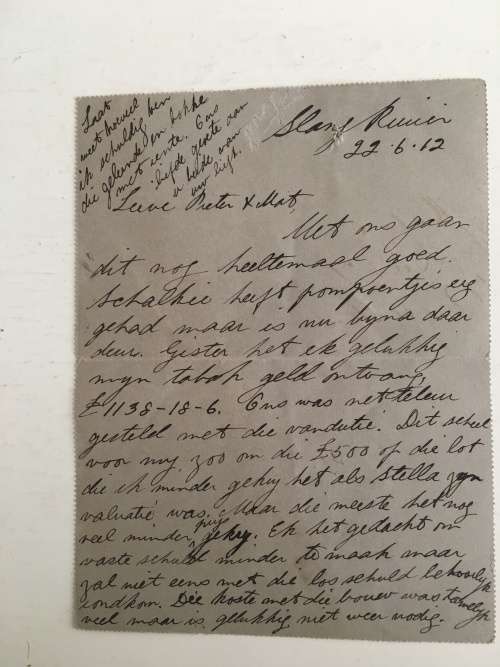 Slang Rivier
22.6.12
Lieve Pieter & Mat,
Met ons gaan
dit nog heeltemaal goed.
Schalkie heeft pompoentjis erg
gehad maar is nu byna daar
deur. Gister het ek gelukkig
myn tabak geld ontvang
£1138-18-6. Ons was net teleur
gesteld met die vandutie. Dit scheel
voor my zoo om die £500 op die lot
die ik minder gekry het als Stella zyn
valuatie was. Maar die meeste het nog
veel minder prys gekry. Ek het gedacht om
vaste schuld minder te maak maar
zal niet eens met die los schuld behoorlyk
rondkom. Die koste met die bouw was tamelyk
veel maar is gelukkig niet weer nodig.
Laat
weet hoeveel ben
ik schuldig
die geleende en bokke
met rente. Ons
liefde groete aan
u beide van
uw